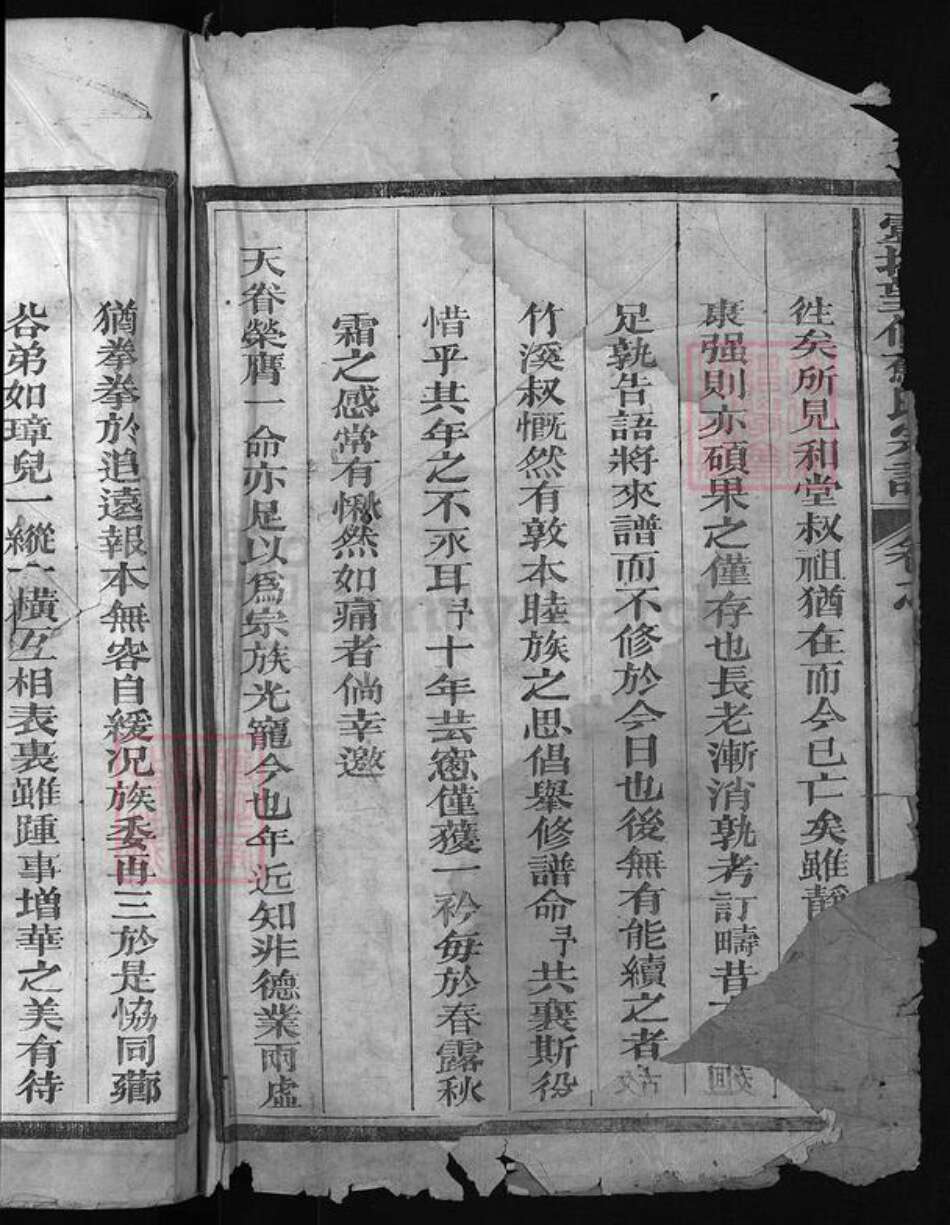 徃矣所見和堂叔祖猶在而今已亡矣雖靜
康强則亦碩果之僅存也長老漸消孰考訂疇昔
足孰告語將來譜而不修於今日也後無有能續之者
竹溪叔慨然有敦本睦族之思倡舉修譜命予共襄斯役
惜乎其年之不永耳予十年芸窻僅獲一衿每於春露秋
霜之感常有愀然如痛者倘幸邀
天眷榮膺一命亦足以爲宗族光寵今也年近知非德業兩虛
猶拳拳於追遠報本無容自緩況族委再三於是恊同薌
谷弟如璋兒一縱一橫互相表裏雖踵事增華之美有待